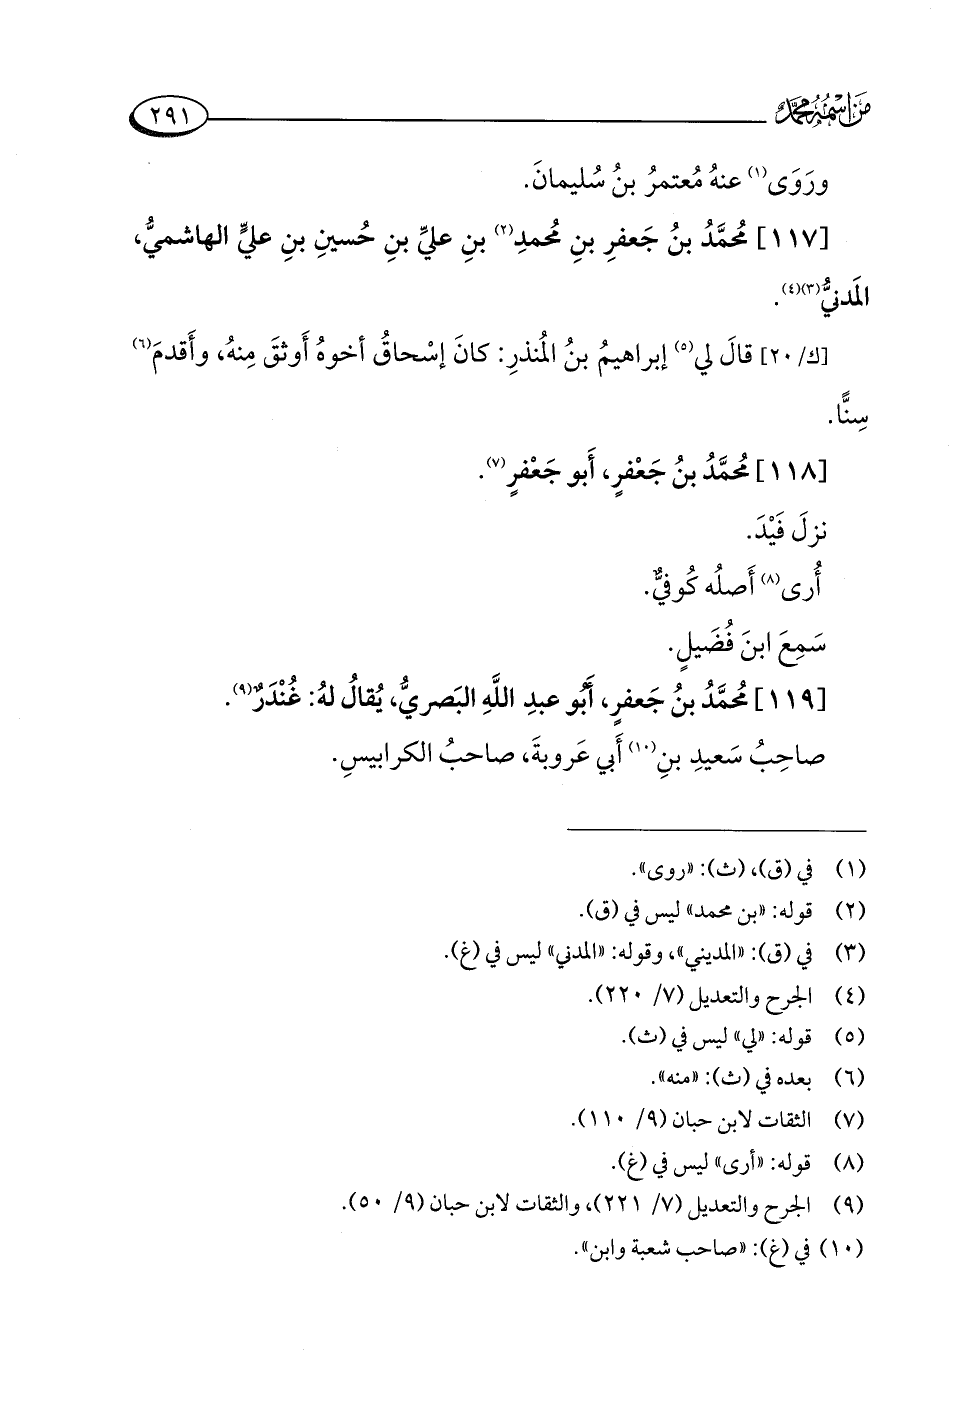 مَن اسْمُهُ مُحمَّد
٢٩١
ورَوَى(١) عنهُ مُعتمرُ بنُ سُليمانَ.
[١١٧] مُحمَّدُ بنُ جَعفرِ بنِ مُحمدِ(٢) بنِ عليِّ بنِ حُسينِ بنِ عليٍّ الهاشميُّ،
المَدنيُّ(٣)(٤).
[ك/٢٠] قالَ لي(٥) إبراهيمُ بنُ المُنذرِ: كانَ إسْحاقُ أخوهُ أَوثقَ مِنهُ، وأَقدمَ(٦)
سِنًّا.
[١١٨] مُحمَّدُ بنُ جَعْفرٍ، أَبو جَعْفرٍ(٧).
نزلَ فَيْدَ.
أُرى(٨) أَصلُه كُوفيٌّ.
سَمِعَ ابنَ فُضَيلٍ.
[١١٩] مُحمَّدُ بنُ جَعفرٍ، أَبُو عبدِ اللَّهِ البَصريُّ، يُقالُ لهُ: غُنْدَرٌ(٩).
صاحِبُ سَعيدِ بنِ(١٠) أَبي عَروبةَ، صاحبُ الكرابيسِ.
(١) في (ق)، (ث): «روى».
(٢) قوله: «بن محمد» ليس في (ق).
(٣) في (ق): «المديني»، وقوله: «المدني» ليس في (غ).
(٤) الجرح والتعديل (٧/ ٢٢٠).
(٥) قوله: «لي» ليس في (ث).
(٦) بعده في (ث): «منه».
(٧) الثقات لابن حبان (٩/ ١١٠).
(٨) قوله: «أرى» ليس في (غ).
(٩) الجرح والتعديل (٧/ ٢٢١)، والثقات لابن حبان (٩/ ٥٠).
(١٠) في (غ): «صاحب شعبة وابن».